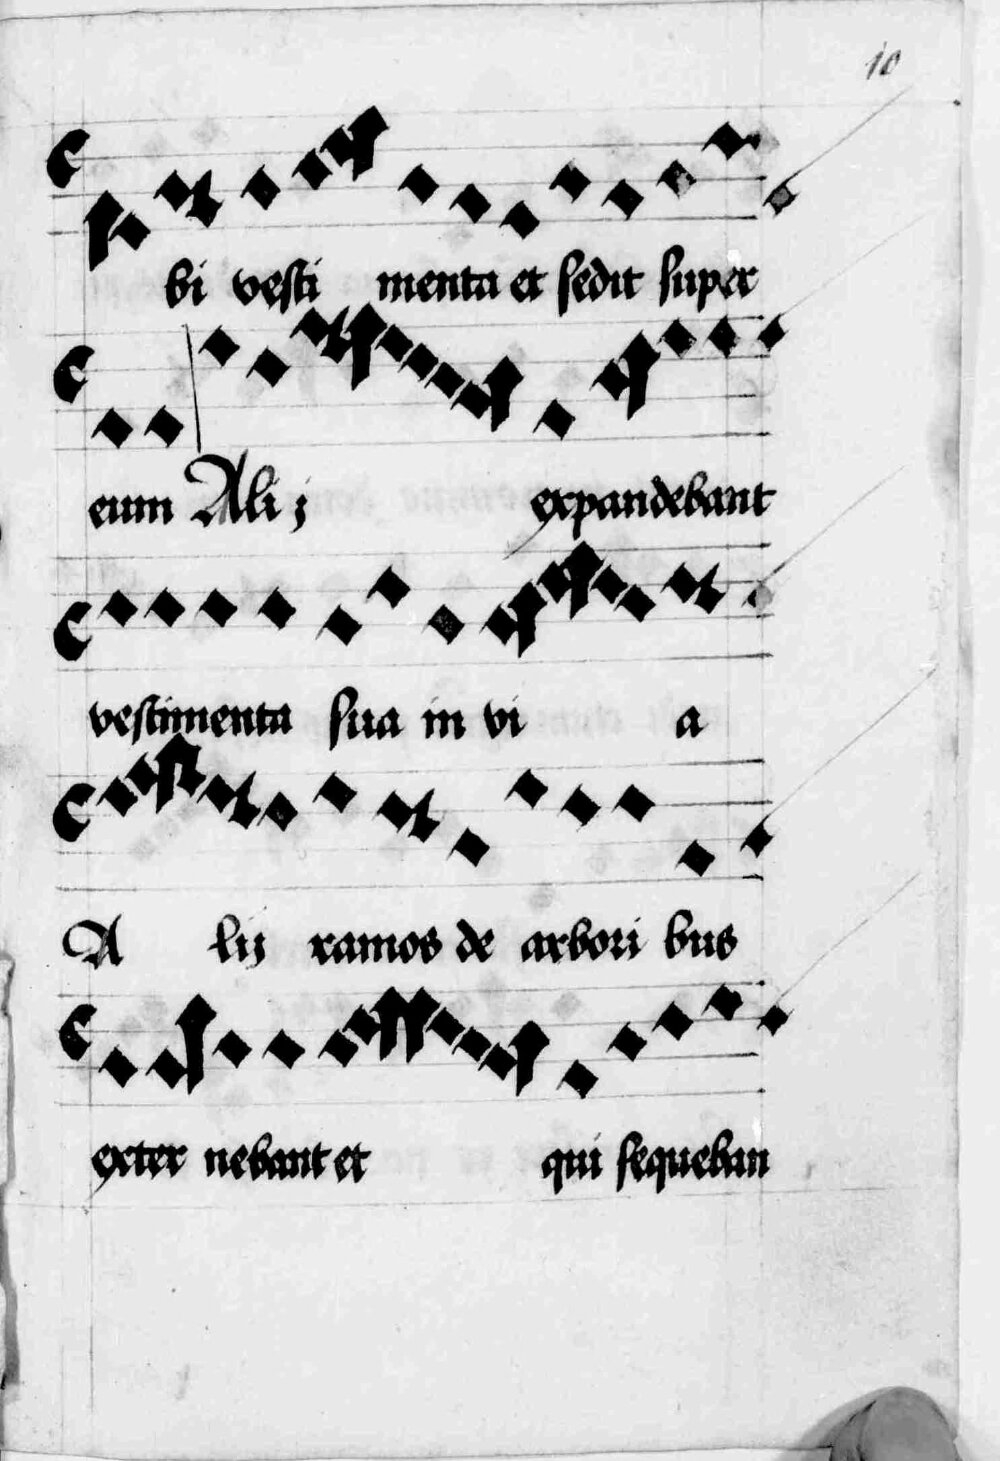 10
bi vesti menta et sedit super
eum Alij expandebant
vestimenta sua in vi a
A lij ramos de arbori bus
exter nebant et qui sequeban